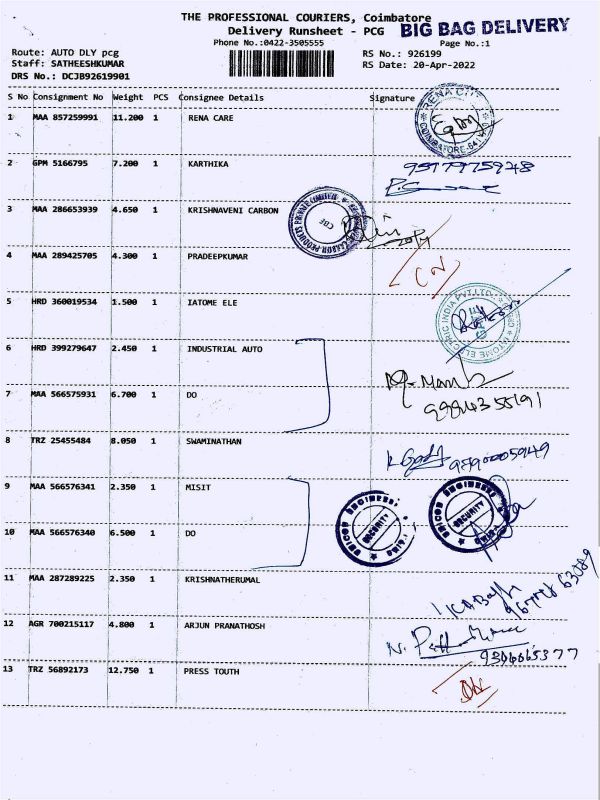 THE PROFESSIONAL COURIERS, Coimbatore
BIG BAG DELIVERY
Delivery Runsheet - PCG
Phone No.:0422-3505555
Page No.:1
Route: AUTO DLY pcg
RS No.: 926199
Staff: SATHEESHKUMAR
RS Date: 20-Apr-2022
DRS No.: DCJB92619901
S No Consignment No Weight PCS Consignee Details Signature
1 MAA 857259991 11.200 1 RENA CARE
RENA
COIMBATORE-641
2 GPM 5166795 7.200 1 KARTHIKA
3 MAA 286653939 4.650 1 KRISHNAVENI CARBON
CARBON PRODUCTS PRIVATE LIMITED
CBE
4 MAA 289425705 4.300 1 PRADEEPKUMAR
CN
5 HRD 360019534 1.500 1 IATOME ELE
IATOME ELECTRIC INDIA PVT.LTD.
6 HRD 399279647 2.450 1 INDUSTRIAL AUTO
7 MAA 566575931 6.700 1 DO
8 TRZ 25455484 8.050 1 SWAMINATHAN
9 MAA 566576341 2.350 1 MISIT
UNICON ENGINEERS
SECURITY
UNICON ENGINEERS
SECURITY
10 MAA 566576340 6.500 1 DO
11 MAA 287289225 2.350 1 KRISHNATHERUMAL
12 AGR 700215117 4.800 1 ARJUN PRANATHOSH
13 TRZ 56892173 12.750 1 PRESS TOUTH